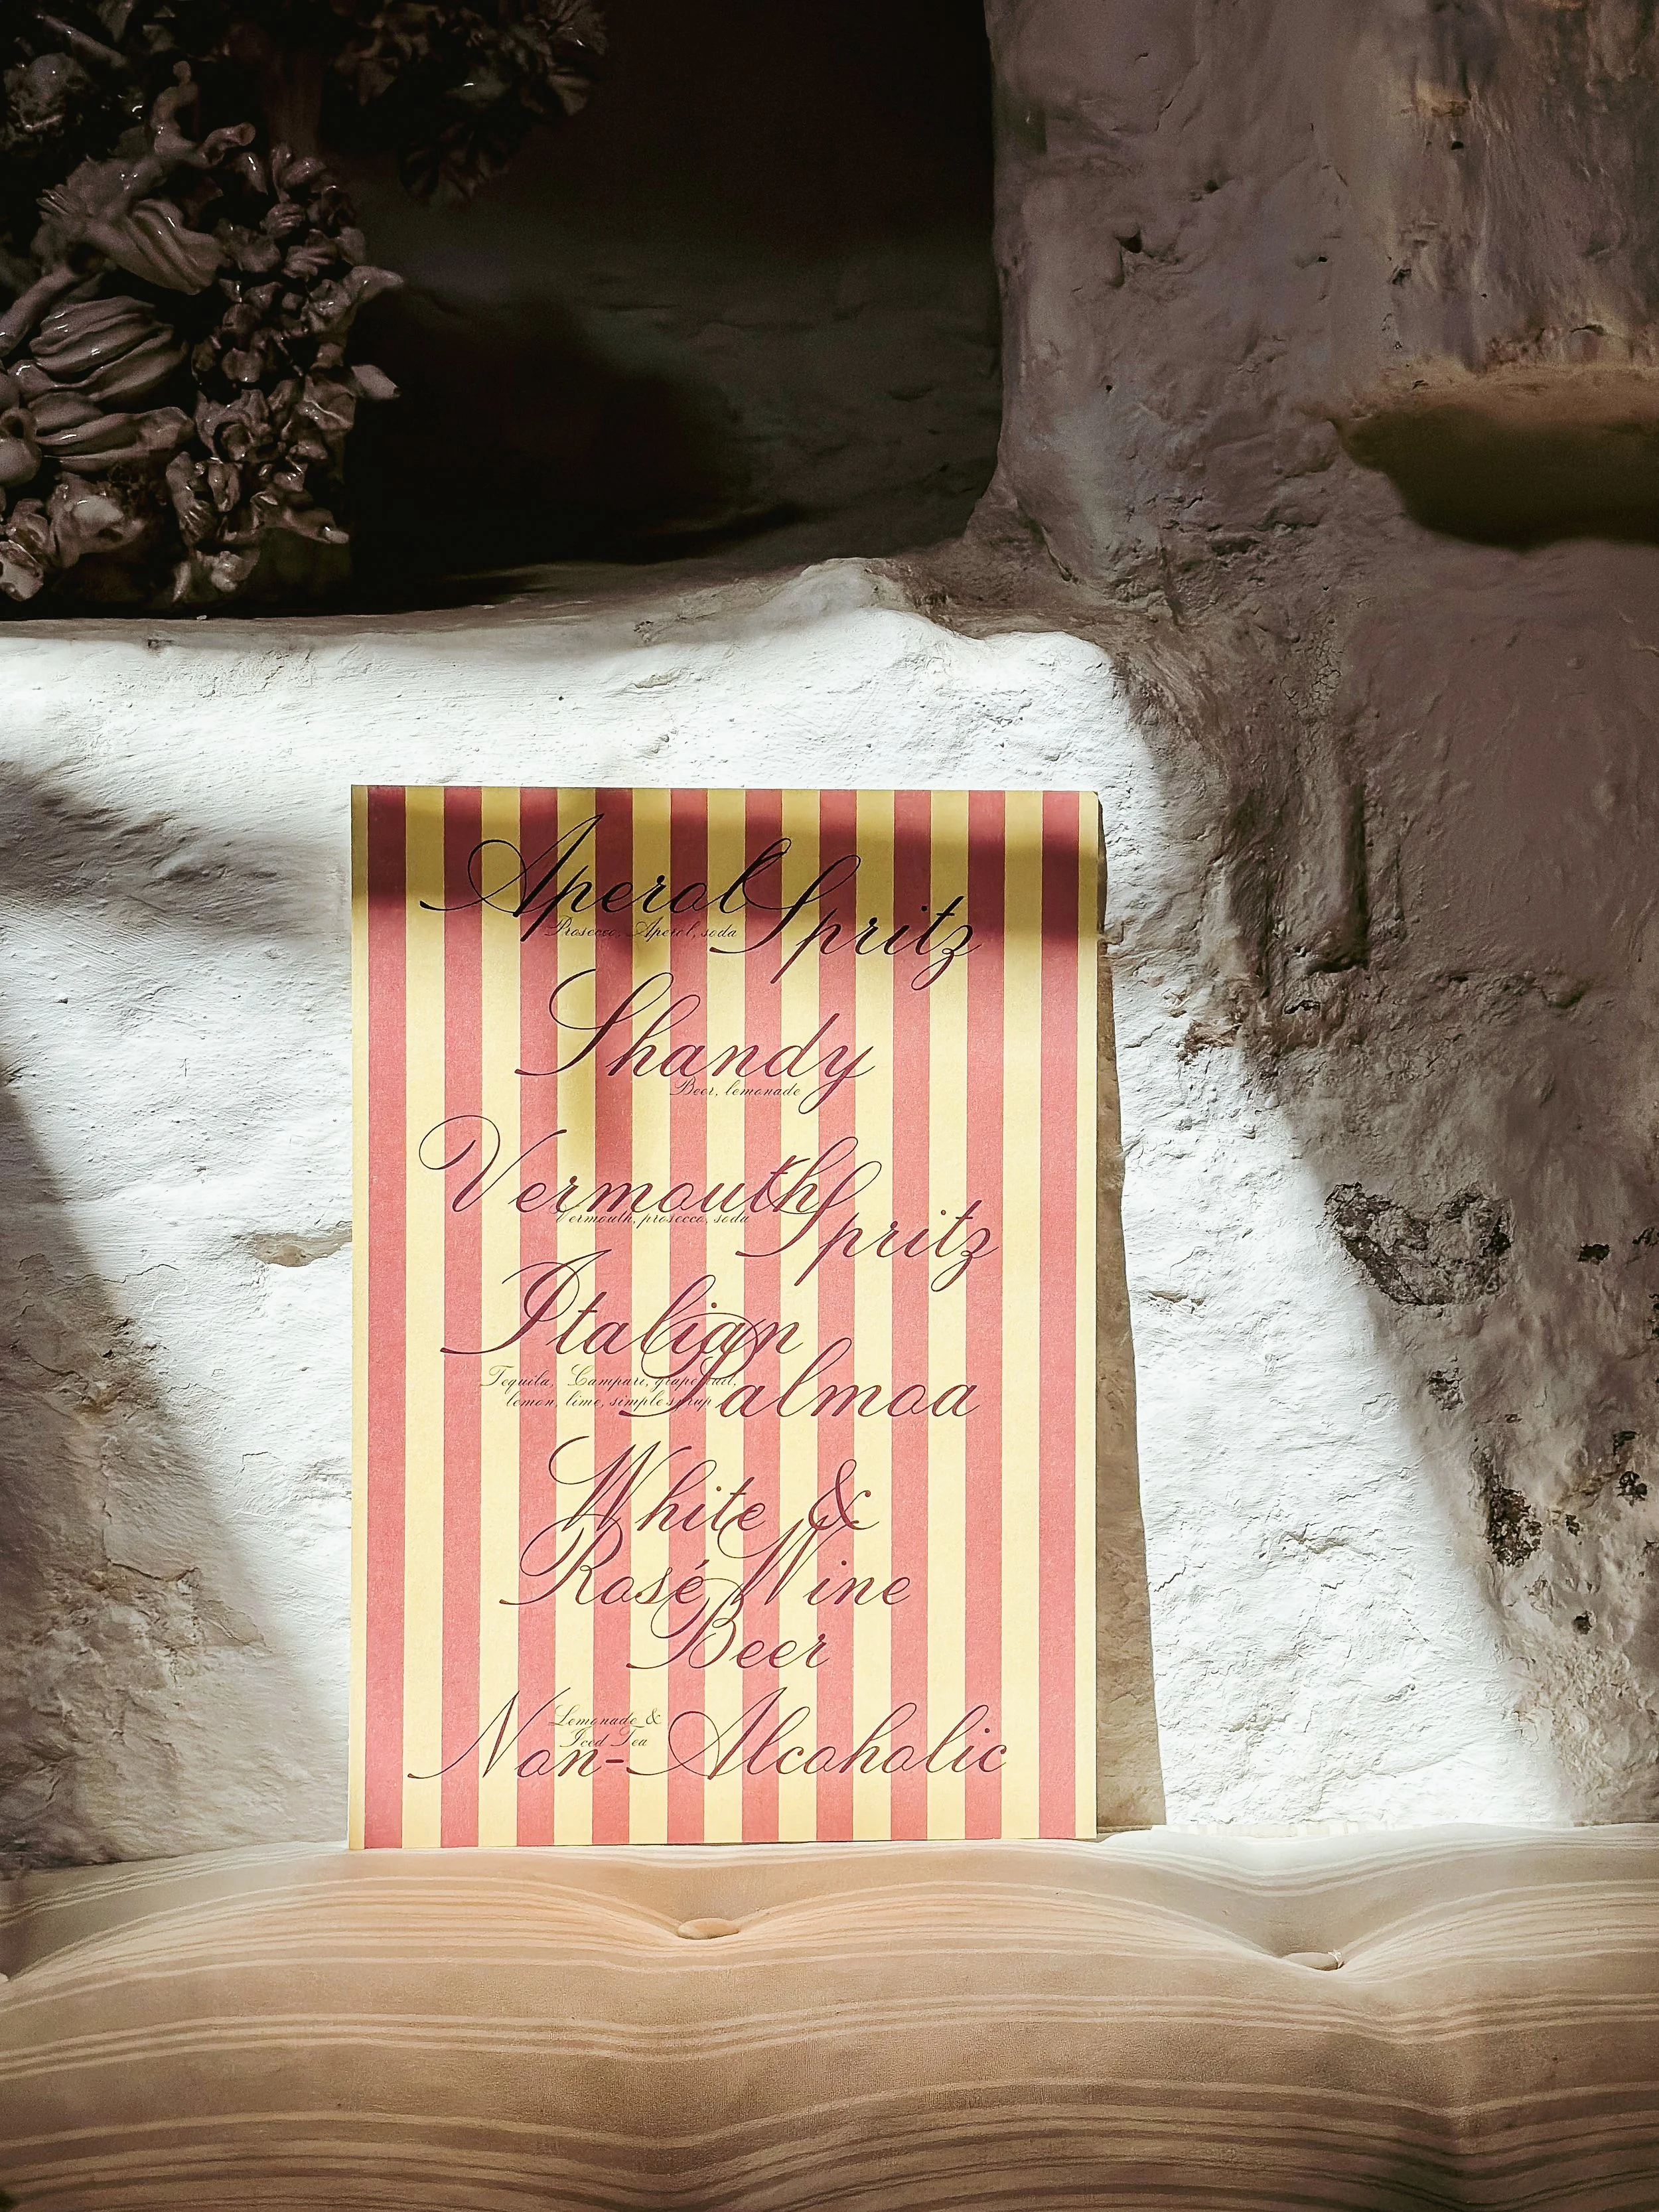 Aperol Spritz
Prosecco, Aperol, soda
Shandy
Beer, lemonade
Vermouth Spritz
Vermouth, prosecco, soda
Italian
Palmoa
Tequila, Campari, grapefruit,
lemon, lime, simple syrup
White &
Rosé Wine
Beer
Lemonade &
Iced Tea
Non-Alcoholic